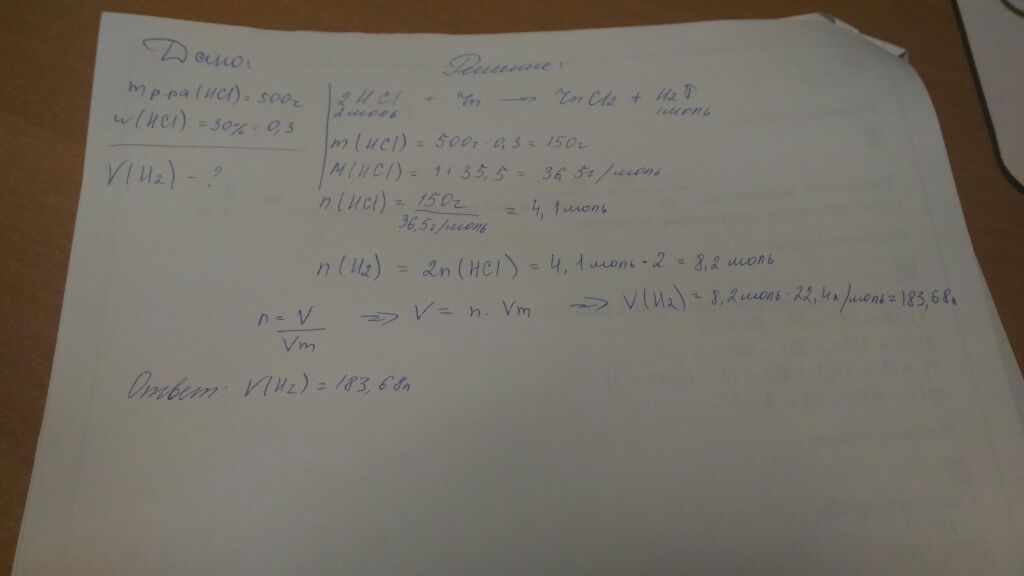 Дано:
mр-ра(HCl) = 500г
w(HCl) = 30% = 0,3
V(H2) - ?
Решение:
2HCl + Zn → ZnCl2 + H2↑
2моль 1моль
m(HCl) = 500г · 0,3 = 150г
M(HCl) = 1 + 35,5 = 36,5г/моль
n(HCl) = 150г / 36,5г/моль = 4,1моль
n(H2) = 2n(HCl) = 4,1моль · 2 = 8,2моль
n = V / Vm => V = n · Vm => V(H2) = 8,2моль · 22,4л/моль = 183,68л
Ответ: V(H2) = 183,68л